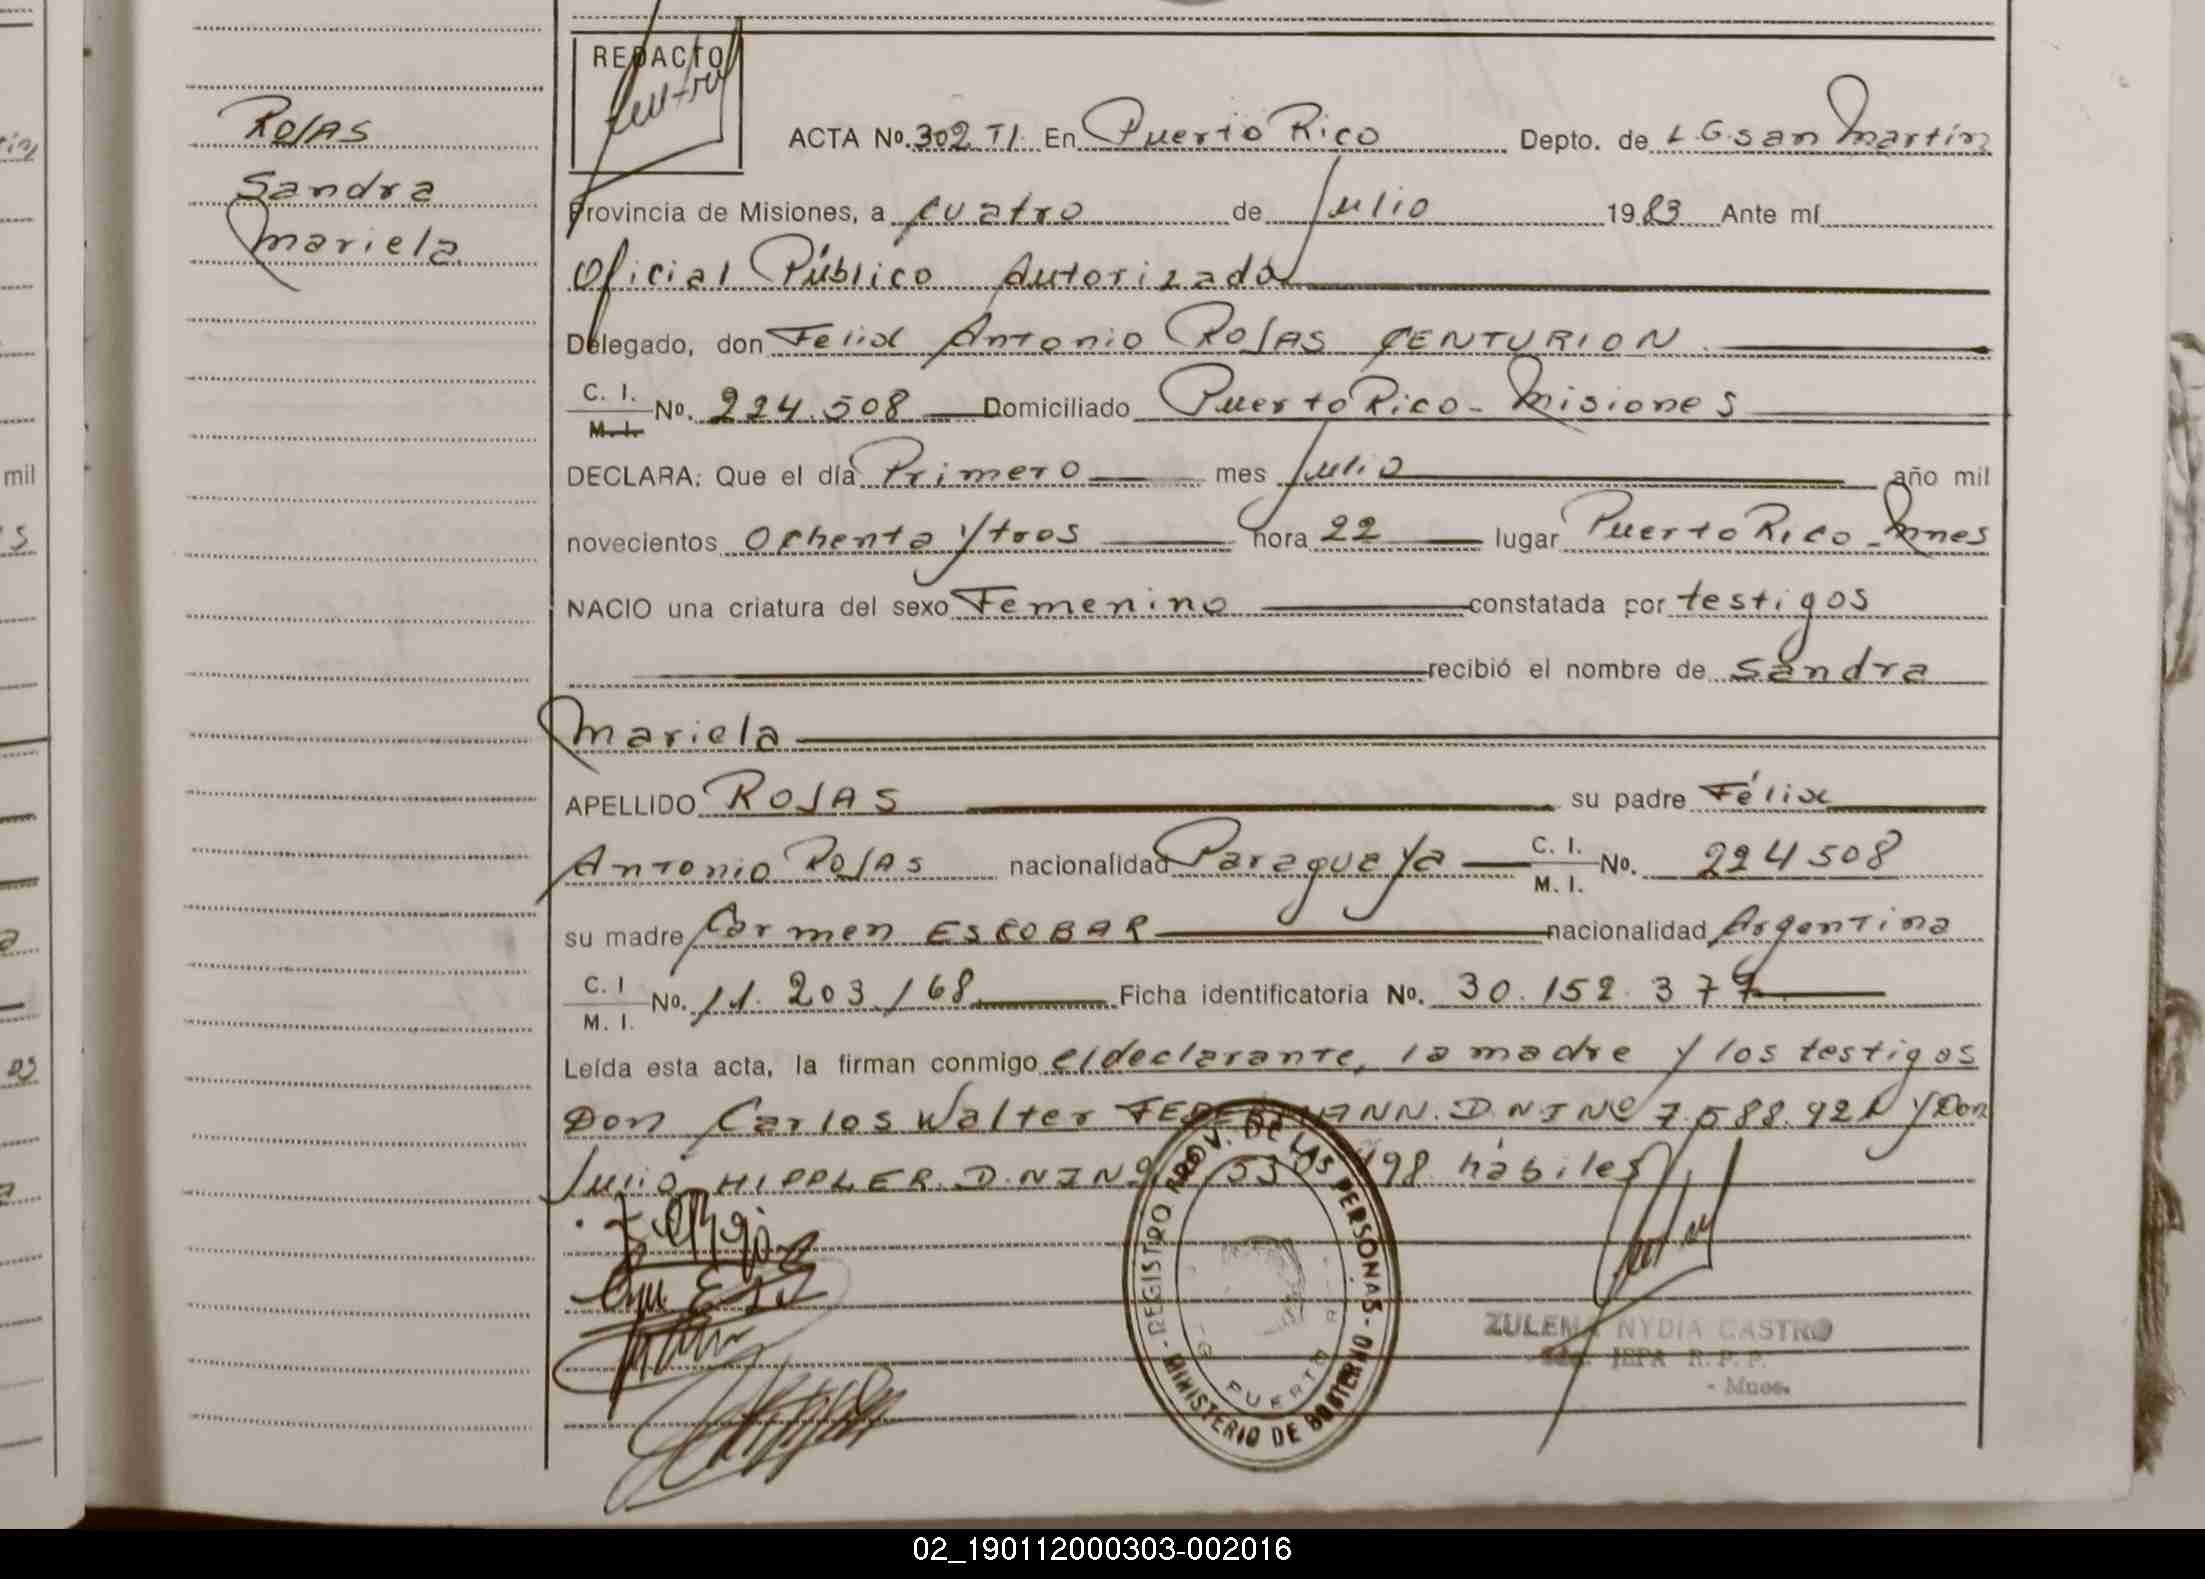 REDACTO
ROJAS
Sandra
Mariela
ACTA No. 302 TI. En Puerto Rico Depto. de L.G. san Martín
Provincia de Misiones, a cuatro de Julio 1983 Ante mí
Oficial Público Autorizado
Delegado, don Felix Antonio ROJAS CENTURION
C. I. M. I. No. 224.508 Domiciliado Puerto Rico - Misiones
DECLARA: Que el día Primero mes Julio año mil
novecientos Ochenta y tres hora 22 lugar Puerto Rico - Mnes
NACIO una criatura del sexo Femenino constatada por testigos
recibió el nombre de Sandra
Mariela
APELLIDO ROJAS su padre Félix
Antonio ROJAS nacionalidad Paraguaya C. I. M. I. No. 224508
su madre Carmen ESCOBAR nacionalidad Argentina
C. I M. I. No. 11.203.168 Ficha identificatoria No. 30.152.377
Leída esta acta, la firman conmigo el declarante, la madre y los testigos
Don Carlos Walter D.N.I Nº 7.588.921 y Don
Julio HIPPLER. D.N.I Nº 498 hábiles
REGISTRO PROV. DE LAS PERSONAS - MINISTERIO DE GOBIERNO -
PUERTO
ZULEMA NYDIA CASTRO
JEFA R. P. P.
- Mnes.
mil
02_190112000303-002016